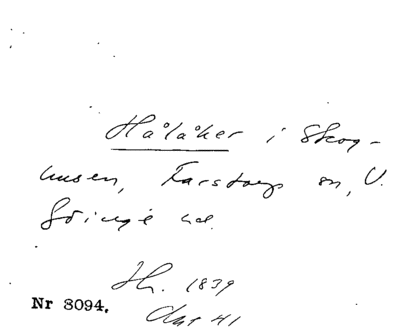 Hålåker i Skog-
husen, Farstorps sn, V.
Göinge hd.
Jh. 1839
Nr 8094.